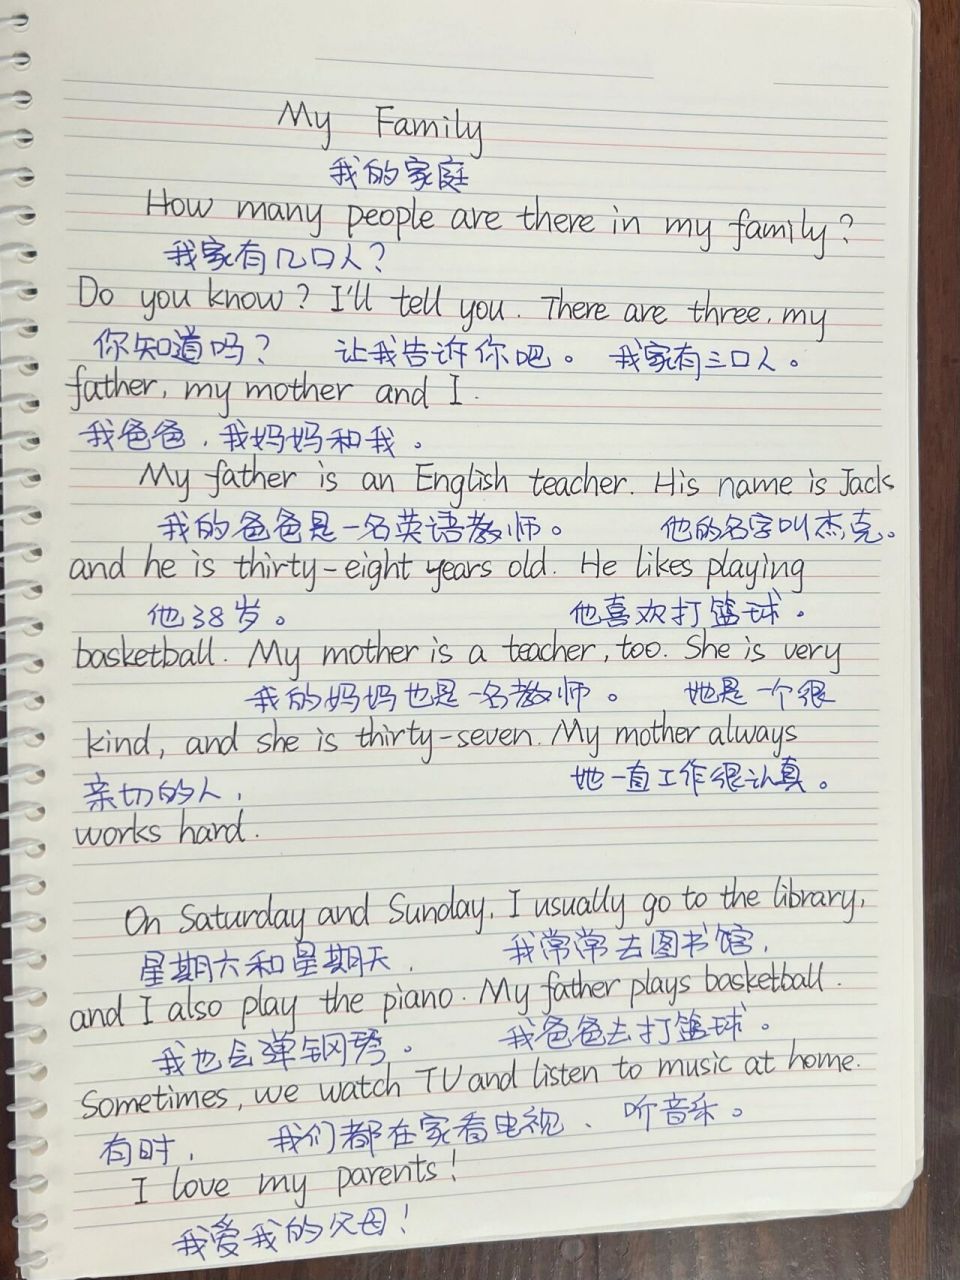 My Family
我的家庭
How many people are there in my family?
我家有几口人?
Do you know? I'll tell you. There are three, my
你知道吗? 让我告诉你吧。 我家有三口人。
father, my mother and I.
我爸爸,我妈妈和我。
My father is an English teacher. His name is Jack
我的爸爸是一名英语教师。 他的名字叫杰克。
and he is thirty-eight years old. He likes playing
他38岁。 他喜欢打篮球。
basketball. My mother is a teacher, too. She is very
我的妈妈也是一名教师。 她是一个很
kind, and she is thirty-seven. My mother always
亲切的人, 她一直工作很认真。
works hard.
On Saturday and Sunday, I usually go to the library,
星期六和星期天, 我常常去图书馆,
and I also play the piano. My father plays basketball.
我也会弹钢琴。 我爸爸去打篮球。
Sometimes, we watch TV and listen to music at home.
有时, 我们都在家看电视、听音乐。
I love my parents!
我爱我的父母!